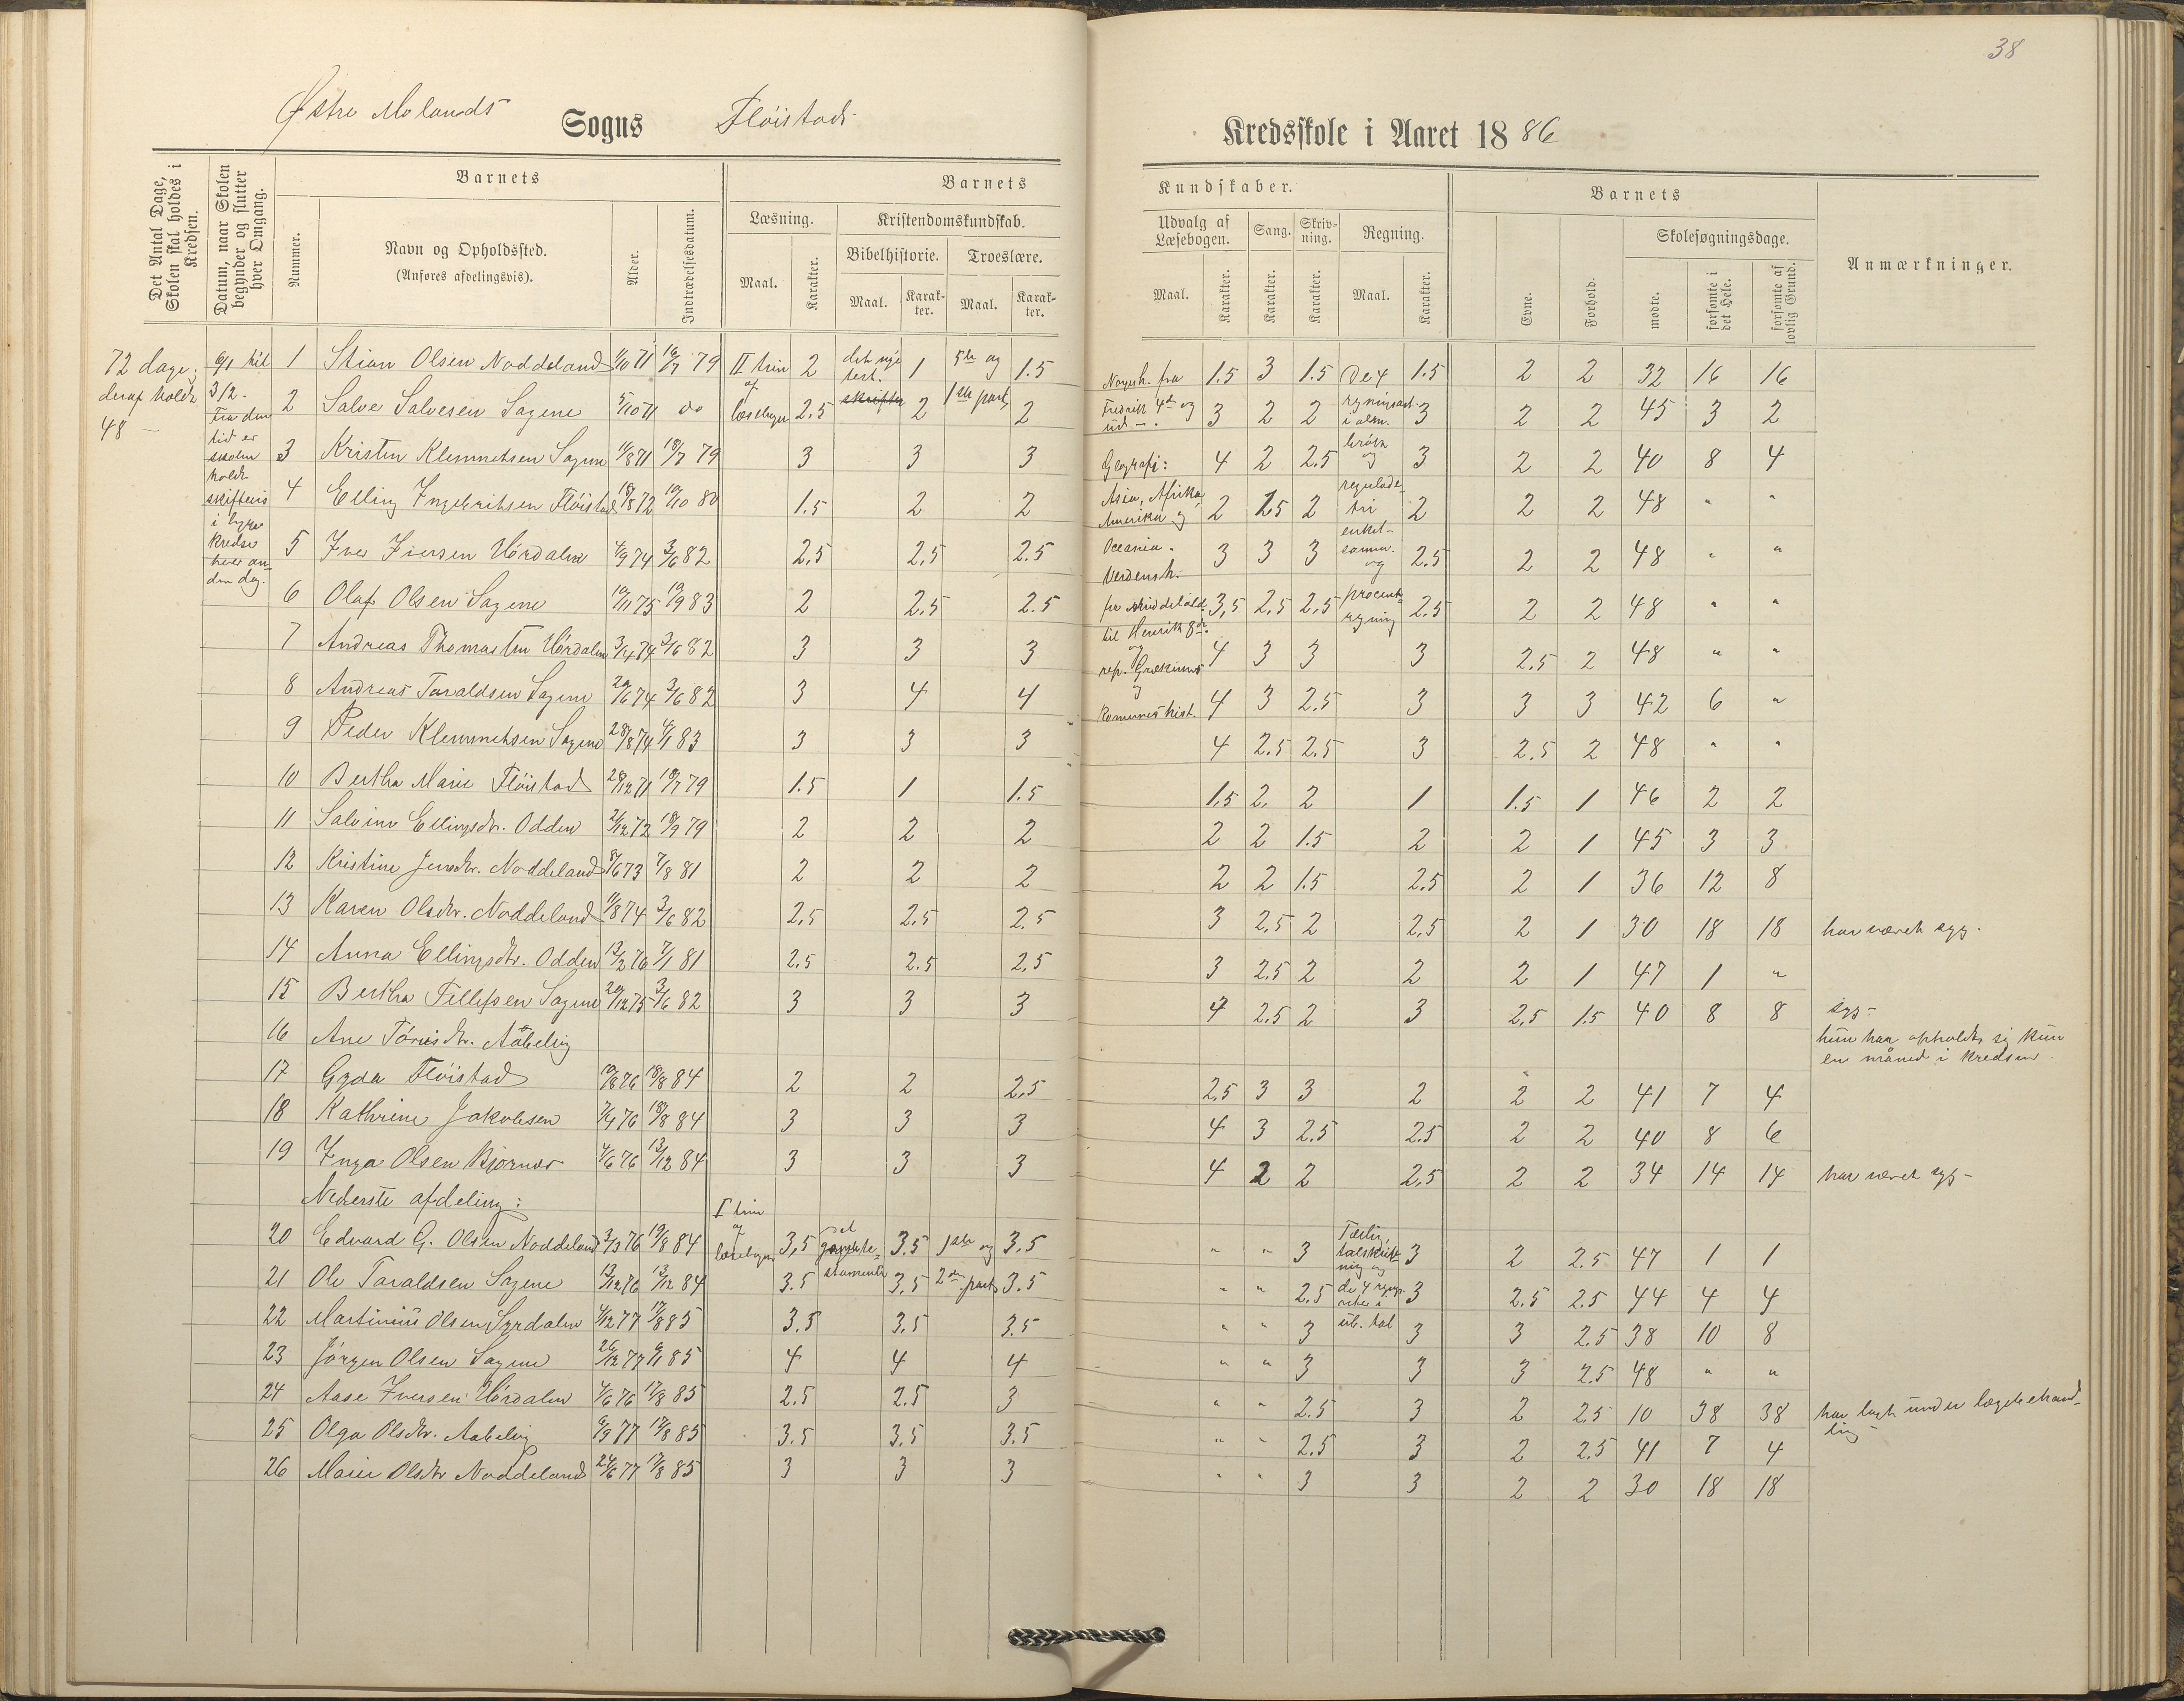 38
Østre Molands Sogns Fløistads Kredsskole i Aaret 1886
Det Antal Dage, Skolen skal holdes i Kredsen.
Datum, naar Skolen begynder og slutter hver Omgang.
Barnets
Nummer.
Navn og Opholdssted.
(Anføres afdelingsvis).
Alder.
Indtrædelsesdatum.
Barnets Kundskaber.
Læsning.
Maal. Karakter.
Kristendomskundskab.
Bibelhistorie. Troeslære.
Maal. Karakter. Maal. Karakter.
Udvalg af Læsebogen. Sang. Skrivning. Regning.
Maal. Karakter. Karakter. Karakter. Maal. Karakter.
Barnets
Evne. Forhold.
Skolesøgningsdage.
mødte. forsømte i det Hele. forsømte af lovlig Grund.
Anmærkninger.
72 dage,
deraf holdt
48 —
9/1 til
3/2.
Fra den
tid er
skolen
holdt
skiftevis
i begge
kredse
hver an-
den dag.
II trin
af
læsebogen
det nye
test.
skrifter
5te og
1ste part
Norgesh. fra
Fredrik 4de og
ud —.
Geografi:
Asia, Afrika
Amerika og
Oceania.
Verdensh.
fra middelald.
til Henrik 8de.
og
rep. Grækernes
og
Romernes hist.
De 4
regningsart.
i alm.
brøk
og
regulade-
tri
enkel-
samm.
og
procent-
regning
1 Stian Olsen Noddeland 1/10 71 16/7 79 2 1 1.5 1.5 3 1.5 1.5 2 2 32 16 16
2 Salve Salvesen Sagene 5/10 71 do 2.5 2 2 3 2 2 3 2 2 45 3 2
3 Kristen Klemmetsen Sagene 11/8 71 18/7 79 3 3 3 4 2 2.5 3 2 2 40 8 4
4 Elling Ingebritsen Fløistad 18/8 72 19/10 80 1.5 2 2 2 2.5 2 2 2 2 48 " "
5 Iver Iversen Hørdalen 4/9 74 3/6 82 2.5 2.5 2.5 3 3 3 2.5 2 2 48 " "
6 Olaf Olsen Sagene 19/11 75 19/9 83 2 2.5 2.5 3,5 2.5 2.5 2.5 2 2 48 " "
7 Andreas Thomassen Hørdalen 3/4 74 3/6 82 3 3 3 4 3 3 3 2.5 2 48 " "
8 Andreas Taraldsen Sagene 29/6 74 3/6 82 3 4 4 4 3 2.5 3 3 3 42 6 "
9 Peder Klemmetsen Sagene 28/8 74 4/1 83 3 3 3 4 2.5 2.5 3 2.5 2 48 " "
10 Bertha Marie Fløistad 28/12 71 18/7 79 1.5 1 1.5 1.5 2. 2 1 1.5 1 46 2 2
11 Salvine Ellingsdtr. Odden 2/12 72 18/9 79 2 2 2 2 2 1.5 2 2 1 45 3 3
12 Kristine Jensdtr. Noddeland 8/6 73 7/8 81 2 2 2 2 2 1.5 2.5 2 1 36 12 8
13 Karen Olsdtr. Noddeland 11/8 74 3/6 82 2.5 2.5 2.5 3 2.5 2 2.5 2 1 30 18 18 har været syg.
14 Anna Ellingsdtr. Odden 13/2 76 7/1 81 2.5 2.5 2.5 3 2.5 2 2 2 1 47 1 "
15 Bertha Tellefsen Sagene 20/12 75 3/6 82 3 3 3 4 2.5 2 3 2.5 1.5 40 8 8 syg —
16 Ane Tørrisdtr. Aabelvig hun har opholdt sig kun
en måned i kredsen.
17 Gyda Fløistad 19/8 76 18/8 84 2 2 2.5 2.5 3 3 2 2 2 41 7 4
18 Kathrine Jakobsen 7/4 76 18/8 84 3 3 3 4 3 2.5 2.5 2 2 40 8 6
19 Inga Olsen Bjørnes 4/6 76 13/12 84 3 3 3 4 2 2 2,5 2 2 34 14 14 har været syg —
Nederste afdeling:
I trin
af
læsebogen
det
gamle te-
stamente
1ste og
2den part
Tælling,
talskriv-
ning og
de 4 regnings-
arter i
ub. tal
20 Edvard G. Olsen Noddeland 2/3 76 19/8 84 3,5 3.5 3.5 " " 3 3 2 2.5 47 1 1
21 Ole Taraldsen Sagene 13/12 76 13/12 84 3.5 3,5 3.5 " " 2.5 3 2.5 2.5 44 4 4
22 Martinius Olsen Syrdalen 4/12 77 17/8 85 3.5 3,5 3.5 " " 3 3 3 2.5 38 10 8
23 Jørgen Olsen Sagene 26/12 77 9/1 85 4 4 4 " " 3 3 3 2.5 48 " "
24 Aase Iversen Hørdalen 4/6 76 17/8 85 2.5 2.5 3 " " 2.5 3 2 2.5 10 38 38 har lagt under lægebehand-
ling
25 Olga Olsdtr. Aabelvig 6/9 77 17/8 85 3.5 3.5 3.5 " " 2.5 3 2 2.5 41 7 4
26 Maren Olsdtr Noddeland 24/6 77 17/8 85 3 3 3 " " 3 3 2 2 30 18 18